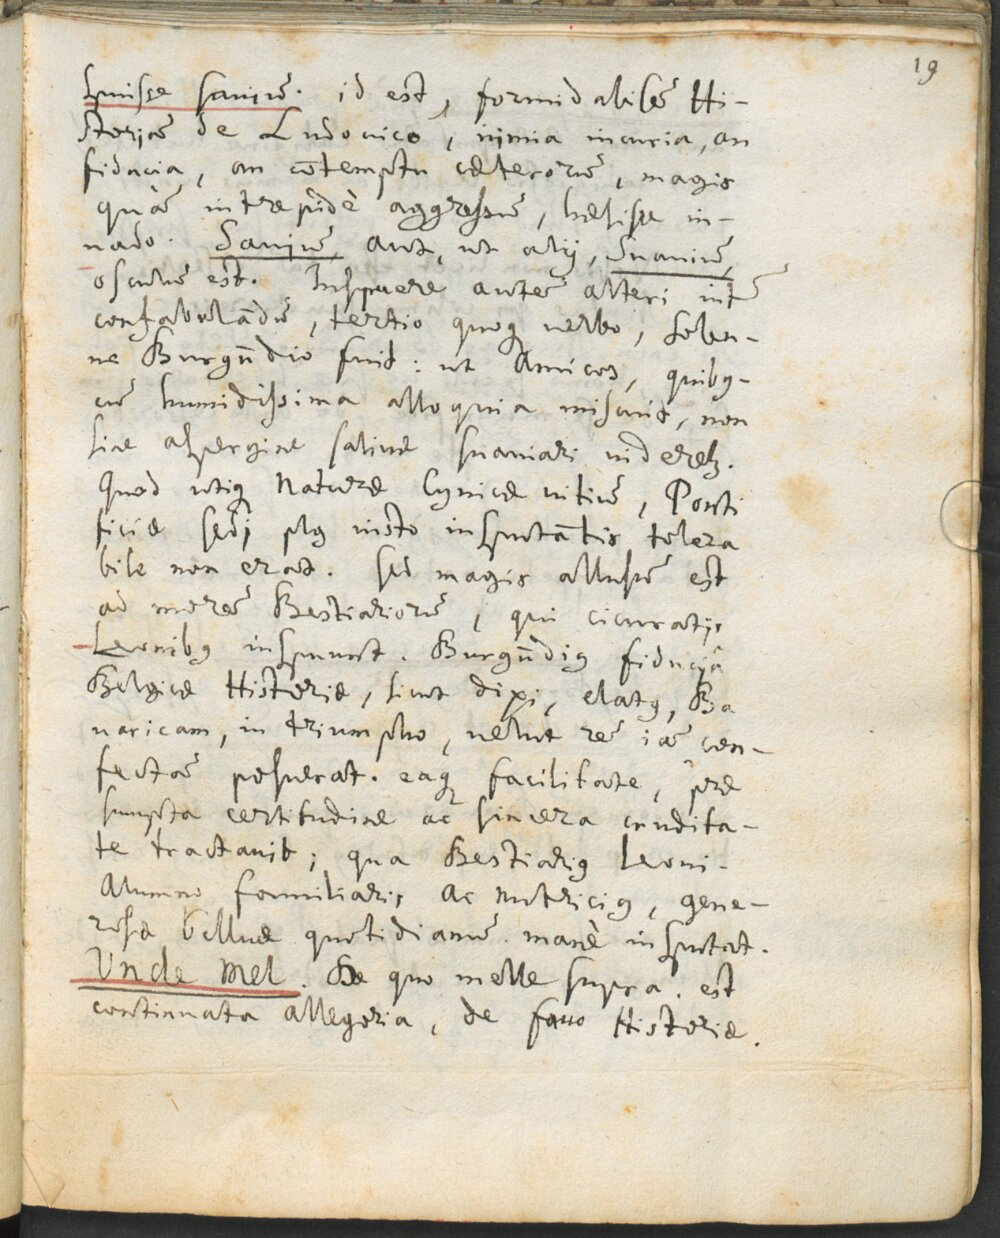 19
Spuisse sauiũ. id est, formidabilẽ Hi-
storiã de Ludouico, nimia incuria, an
fiducia, an cõtemptu cæterorũ, magis
quàm intrepidè aggressũ, hesisse in-
uado. Sauiũ, aut, ut alij, Suauiũ,
osculũ est. Inspuere autẽ alteri intẽ
confabulãdũ, tertio quoq uerbo, solen-
ne Burgũdio fuit: ut Amicos, quibꝯ-
cũ humidissima alloquia miscuit, non
sine aspergine saliuæ suauiari uideretꝫ.
Quod utiq Naturæ Cynicæ uitiũ, Ponti
ficiæ sedi plꝯ iusto insputãtis tolera
bile non erat. sed magis allusũ est
ad morẽ Bestiariorũ, qui cicuratis
Leonibꝯ inspuunt. Burgũdiꝯ fiduciâ
Belgicæ Historiæ, sicut dixi, elatꝯ, Ba
uaricam, in triumpho, uelut rẽ iã con-
fectã posuerat. eaq facilitate, præ
sumpta certitudine ac sincera crudita-
te tractauit; qua Bestiariꝯ Leoni-
Alumno familiaris ac nutriciꝯ, gene-
rosæ belluæ quotidianũ manè insputat.
Vnde mel. De quo melle supra. est
continuata allegoria, de fauo Historiæ.